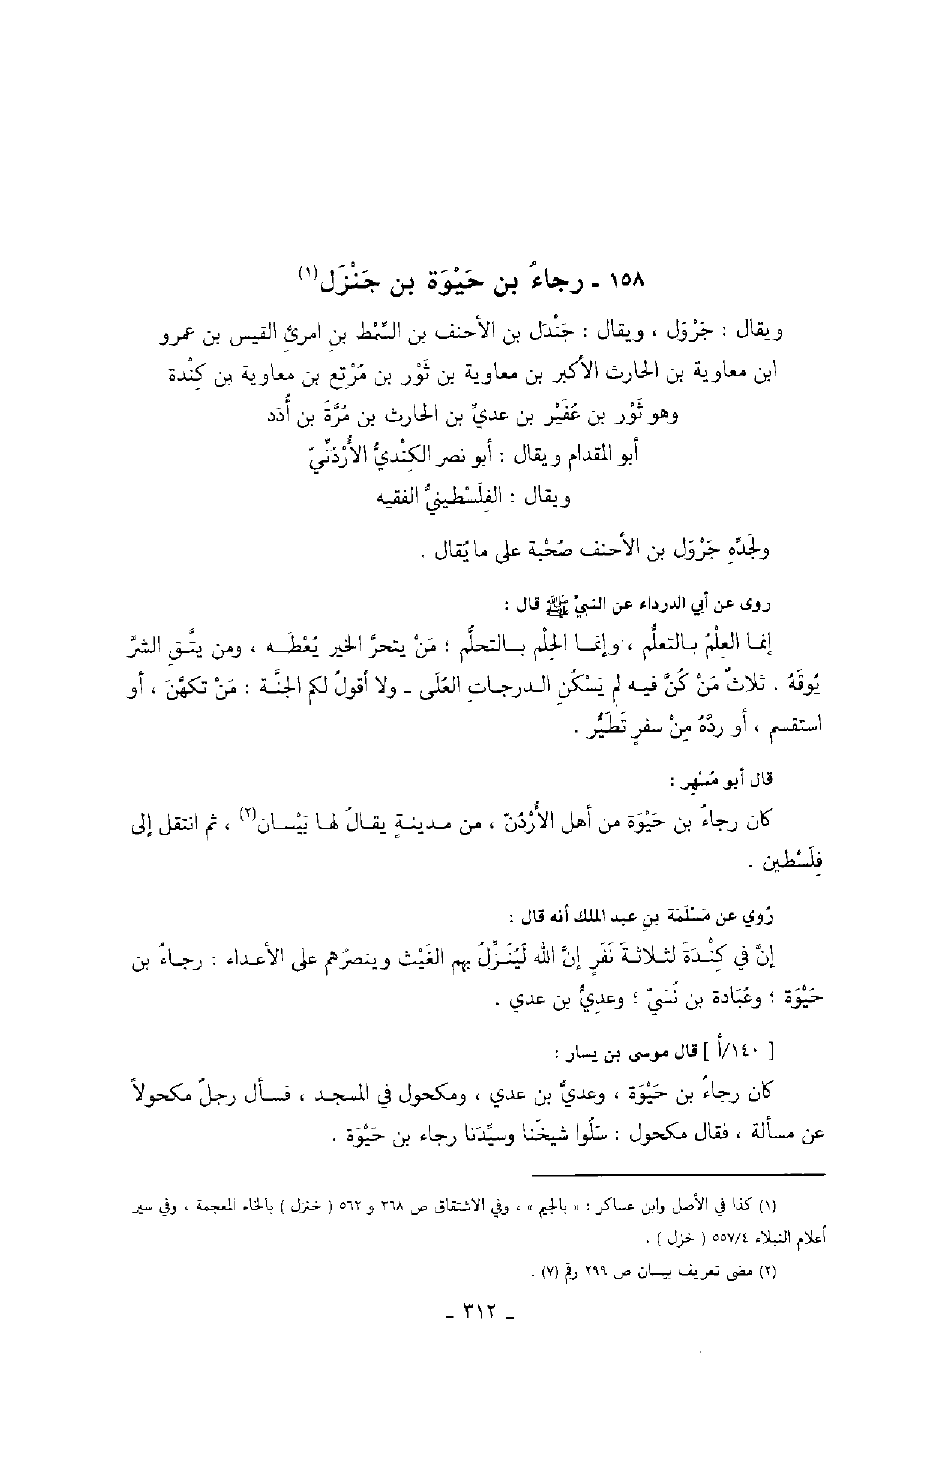 ١٥٨ ـ رجاءُ بن حَيْوَة بن جَنْزَل(١)
ويقال : جَرْوَل ، ويقال : جَنْدَل بن الأحنف بن السِّمْط بنِ امرئِ القيس بن عمرو
ابن معاوية بن الحارث الأكبر بن معاوية بن ثَوْر بن مُرْتِع بن معاوية بن كِنْدة
وهو ثَوْر بن عُفَيْر بن عديّ بن الحارث بن مُرَّةَ بن أُدَد
أبو المقدام ويقال : أبو نصر الكِنْديُّ الأُرْدُنّيّ
ويقال : الفِلَسْطينيُّ الفقيه
ولجَدِّهِ جَرْوَل بن الأحنف صُحْبة على ما يُقال .
روى عن أبي الدرداء عن النبيّ ﷺ قال :
إنما العِلْمُ بالتعلُّم ، وإنما الحِلْم بالتحلُّم ؛ مَنْ يتحرَّ الخير يُعْطَه ، ومن يتَّقِ الشرَّ
يُوقَهُ . ثلاثٌ مَنْ كُنَّ فيه لم يَسْكُنِ الدرجاتِ العُلَى ـ ولا أقولُ لكم الجنَّة : مَنْ تكهَّنَ ، أو
استقسم ، أو ردَّهُ مِنْ سفرٍ تَطَيُّر .
قال أبو مُسْهِر :
كان رجاءُ بن حَيْوَة من أهل الأُرْدُنّ ، من مدينةٍ يقالُ لها بَيْسان(٢) ، ثم انتقل إلى
فِلَسْطين .
رُوي عن مَسْلَمَة بنِ عبد الملك أنه قال :
إنَّ في كِنْدَةَ لثلاثةَ نَفَرٍ إنَّ الله لَيُنَزِّلُ بهم الغَيْثَ وينصرُهم على الأعداء : رجاءُ بن
حَيْوَة ؛ وعُبَادة بن نُسَيّ ؛ وعديُّ بن عدي .
[ ١٤٠/أ ] قال موسى بن يسار :
كان رجاءُ بن حَيْوَة ، وعديُّ بن عدي ، ومكحول في المسجد ، فسأل رجلٌ مكحولاً
عن مسألة ، فقال مكحول : سَلُوا شيخَنا وسيِّدَنا رجاء بن حَيْوَة .
(١) كذا في الأصل وابن عساكر : « بالجيم » ، وفي الاشتقاق ص ٣٦٨ و ٥٦٢ ( خنزل ) بالخاء المعجمة ، وفي سير
أعلام النبلاء ٥٥٧/٤ ( خزل ) .
(٢) مضى تعريف بيسان ص ٢٩٩ رقم (٧) .
ـ ٣١٢ ـ